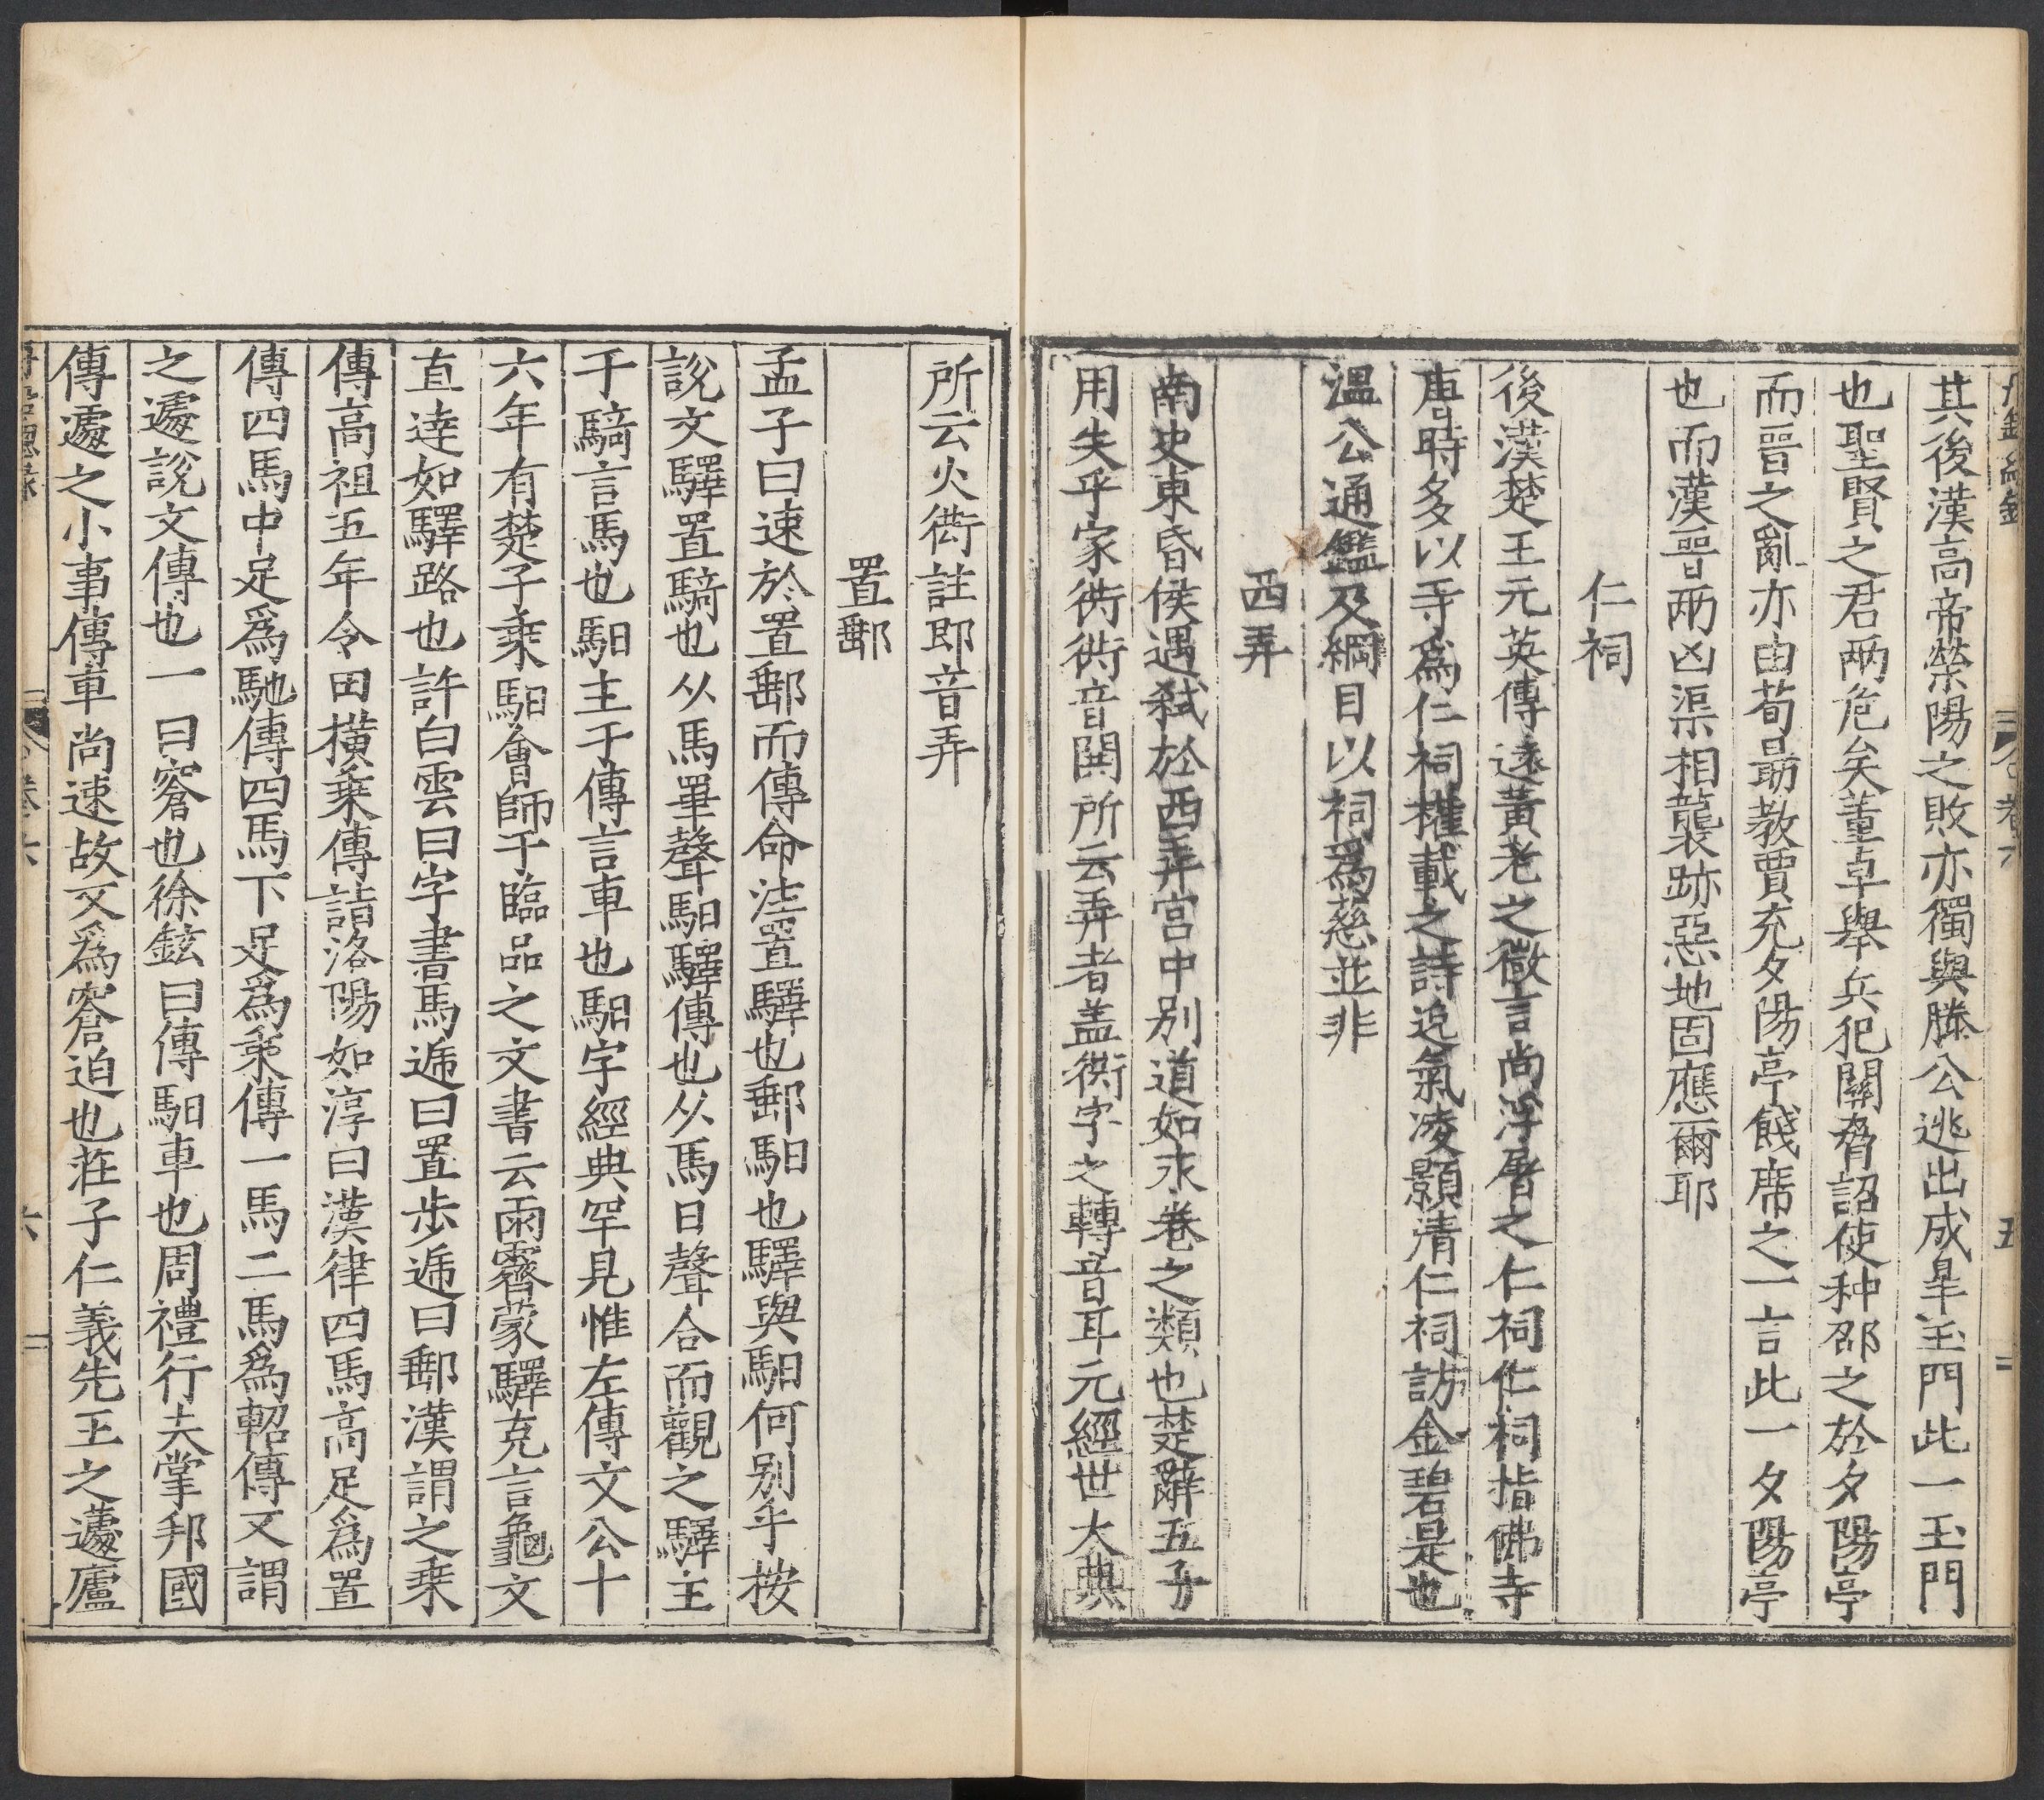 其後漢高帝滎陽之敗亦獨與滕公逃出成皐玉門此一玉門
也聖賢之君兩危矣董卓舉兵犯闕脅詔使种邵之於夕陽亭
而晉之亂亦由荀勗教賈充夕陽亭餞席之一言此一夕陽亭
也而漢晉兩凶渠相襲跡惡地固應爾耶
仁祠
後漢楚王元英傳遠黃老之微言尚浮屠之仁祠仁祠指佛寺
唐時多以寺爲仁祠權載之詩逸氣凌顥清仁祠訪金碧是也
溫公通鑑及綱目以祠爲慈並非
西弄
南史東昏侯遇弒於西弄宮中別道如永巷之類也楚辭五子
用失乎家衖衖音閧所云弄者盖衖字之轉音耳元經世大典
所云火衖註即音弄
置郵
孟子曰速於置郵而傳命注置驛也郵馹也驛與馹何別乎按
說文驛置騎也从馬睪聲馹驛傳也从馬日聲合而觀之驛主
于騎言馬也馹主于傳言車也馹字經典罕見惟左傳文公十
六年有楚子乘馹會師于臨品之文書云雨霽蒙驛克言龜文
直逹如驛路也許白雲曰字書馬遞曰置步遞曰郵漢謂之乗
傳高祖五年令田橫乗傳詣洛陽如淳曰漢律四馬高足爲置
傳四馬中足爲馳傳四馬下足爲乘傳一馬二馬爲軺傳又謂
之遽說文傳也一曰窘也徐鉉曰傳馹車也周禮行夫掌邦國
傳遽之小事傳車尚速故又爲窘迫也莊子仁義先王之蘧廬
卷六
六